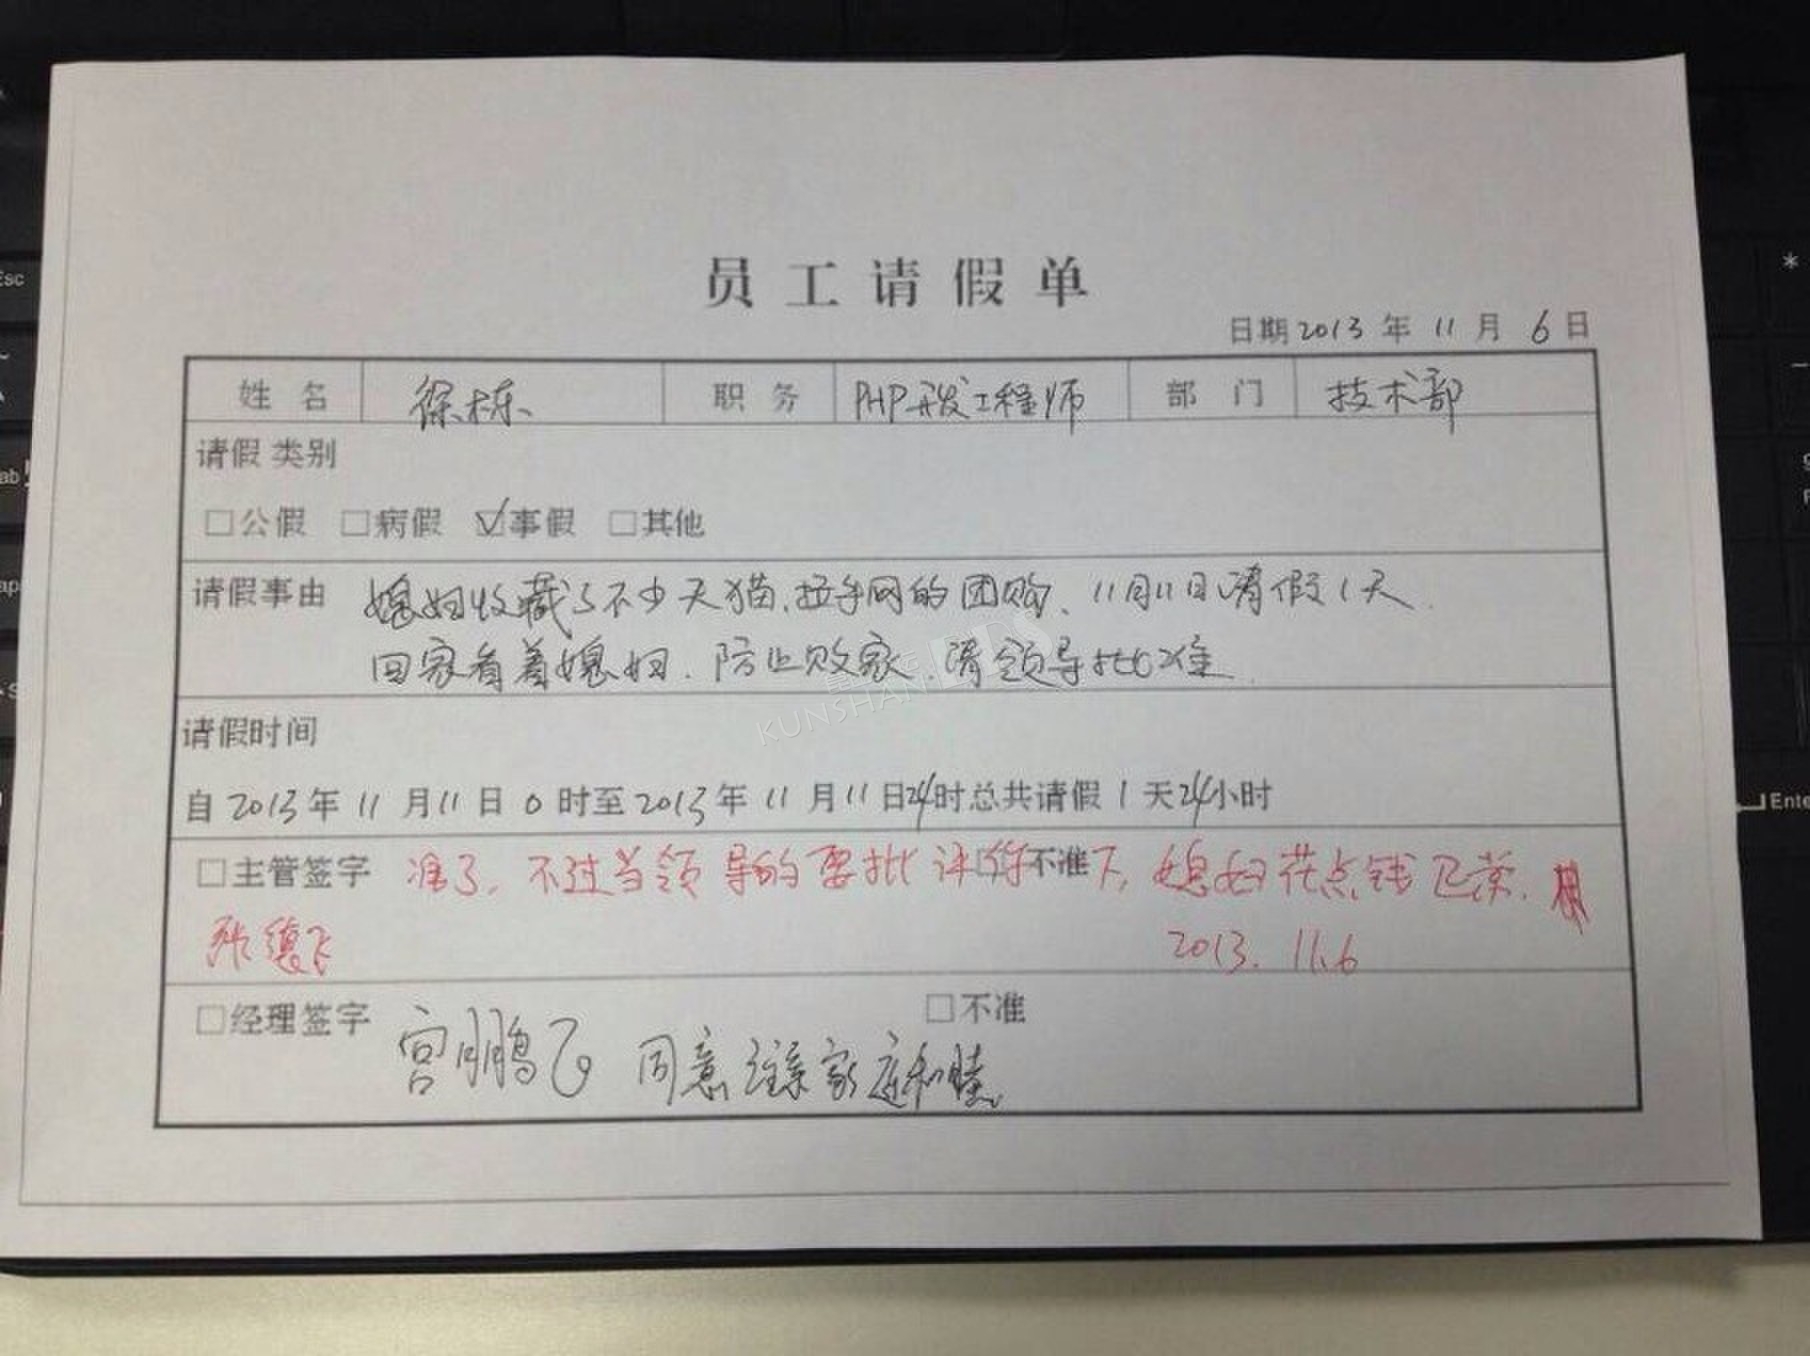 员工请假单
日期2013年11月6日
姓名 徐栋 职务 PHP开发工程师 部门 技术部
请假类别
□公假 □病假 ☑事假 □其他
请假事由 媳妇收藏了不少天猫、拉手网的团购、11月11日请假1天.
回家看着媳妇.防止败家.请领导批准.
请假时间
自2013年11月11日0时至2013年11月11日24时总共请假1天24小时
□主管签字 准了,不过当领导的要批评你 □不准 下,媳妇花点钱
张德飞 2013.11.6
□经理签字 宫鹏飞 □不准
同意 家庭和睦
KUNSHAN BBS
Esc
Enter